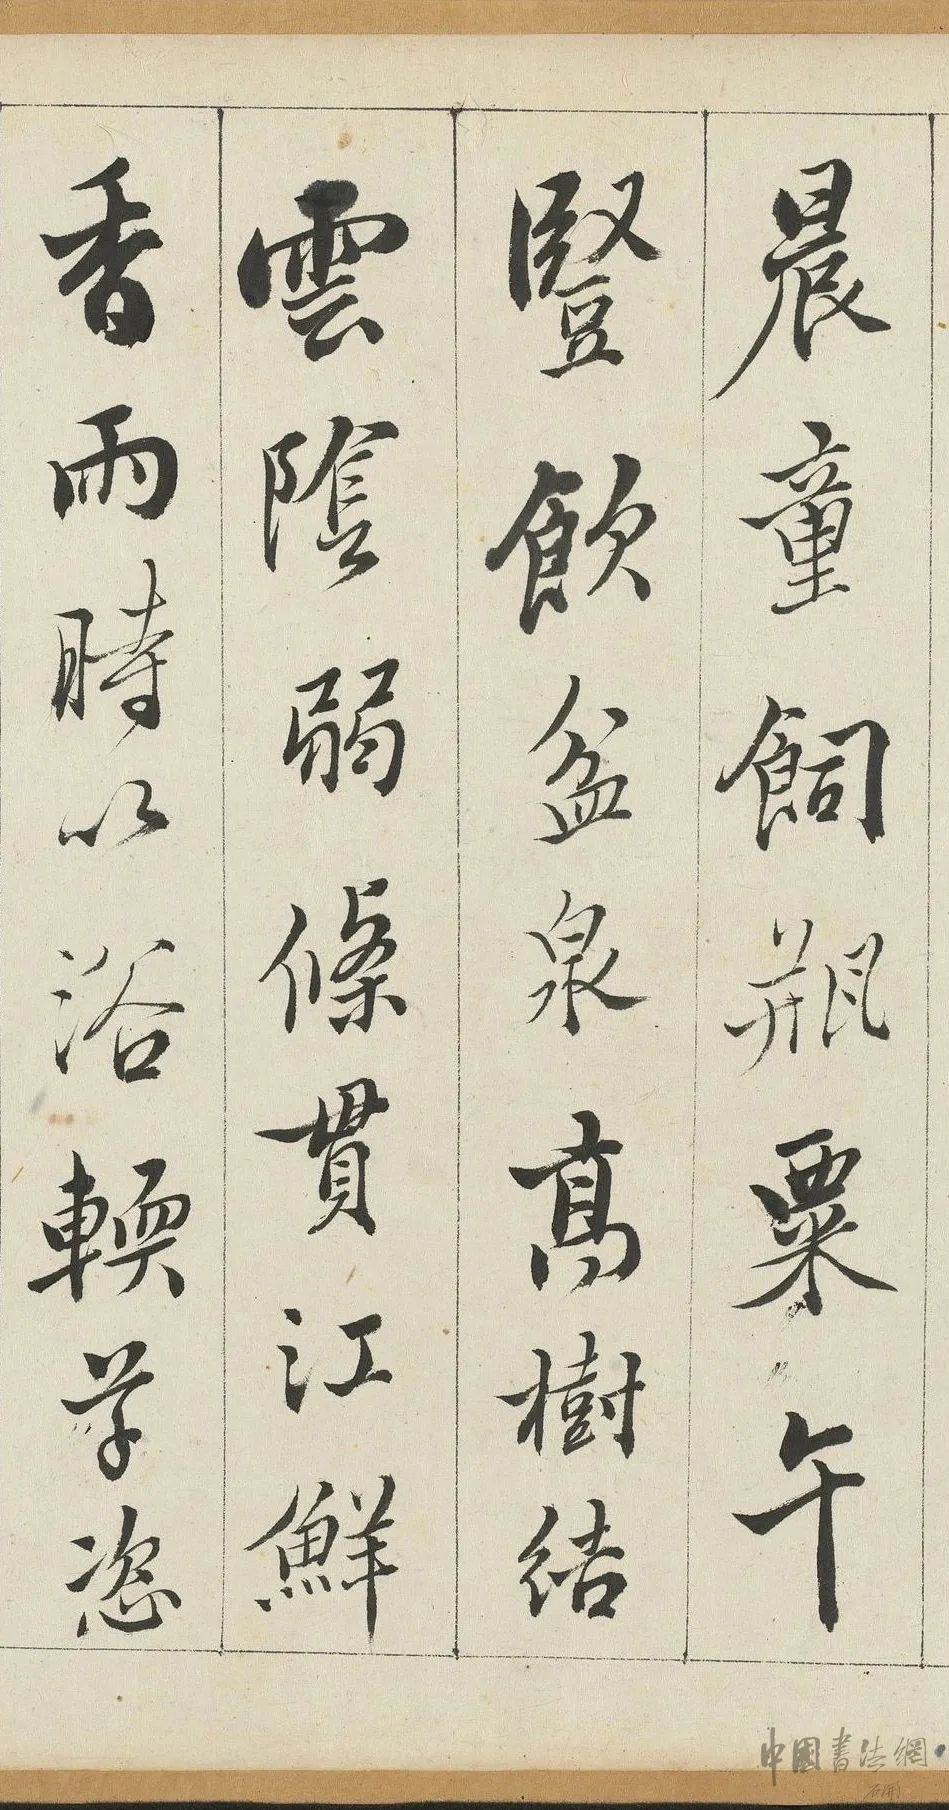 晨童飼瓶粟午
豎飲盆泉高樹結
雲陰弱條貫江鮮
香雨時以浴輭草恣
中國書法網